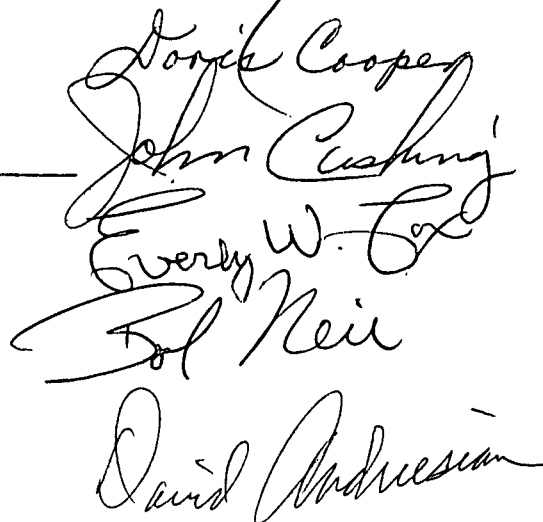 Doris Cooper
John Cushing
Everly W. Cox
Bob Neil
David Andresian